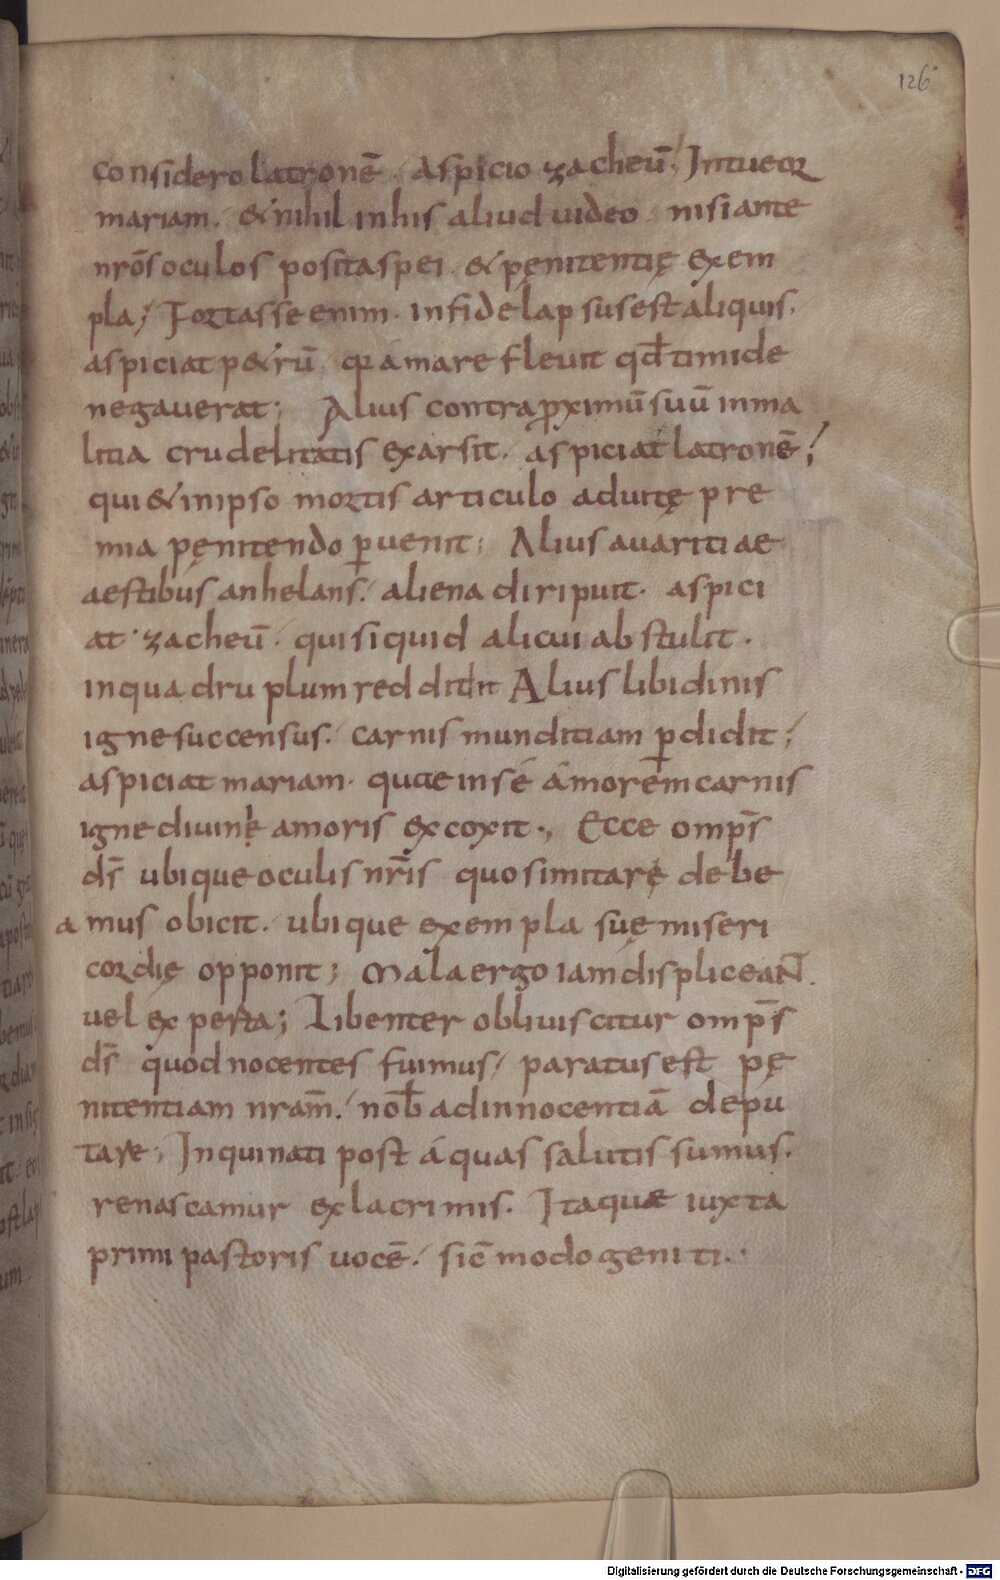 126
considero latronē. Aspicio zacheū; Intueor
mariam. & nihil in his aliud uideo. nisi ante
nrōs oculos posita spei. & pęnitentię exem
pla; Fortasse enim. in fide lapsus est aliquis.
aspiciat p&rū. qui amare fleuit qđ timide
negauerat; Alius contra ꝓximū suū in ma
litia crudelitatis exarsit. aspiciat latronē;
qui & in ipso mortis articulo ad uitę pre
mia pęnitendo ꝑuenit; Alius auaritiae
aestibus anhelans. aliena diripuit. aspici
at zacheū. qui si quid alicui abstulit.
in quadruplum reddidit Alius libidinis
igne succensus. carnis munditiam ꝑdidit;
aspiciat mariam. quae in sé ámorem carnis
igne diuinę amoris excoxit., Ecce omp̄s
d̄s ubique oculis nr̄is quos imitarę debe
amus obicit. ubique exempla suę miseri
cordię opponit; Mala ergo iam displiceant.
uel experta; Libenter obliuiscitur omp̄s
d̄s quod nocentes fuimus. paratus est pę
nitentiam nram̄. nob̄ ad innocentiā depu
tare; Inquinati post áquas salutis sumus.
renascamur ex lacrimis. Itaque iuxta
primi pastoris uocē. sic̄ modo geniti.
Digitalisierung gefördert durch die Deutsche Forschungsgemeinschaft - DFG